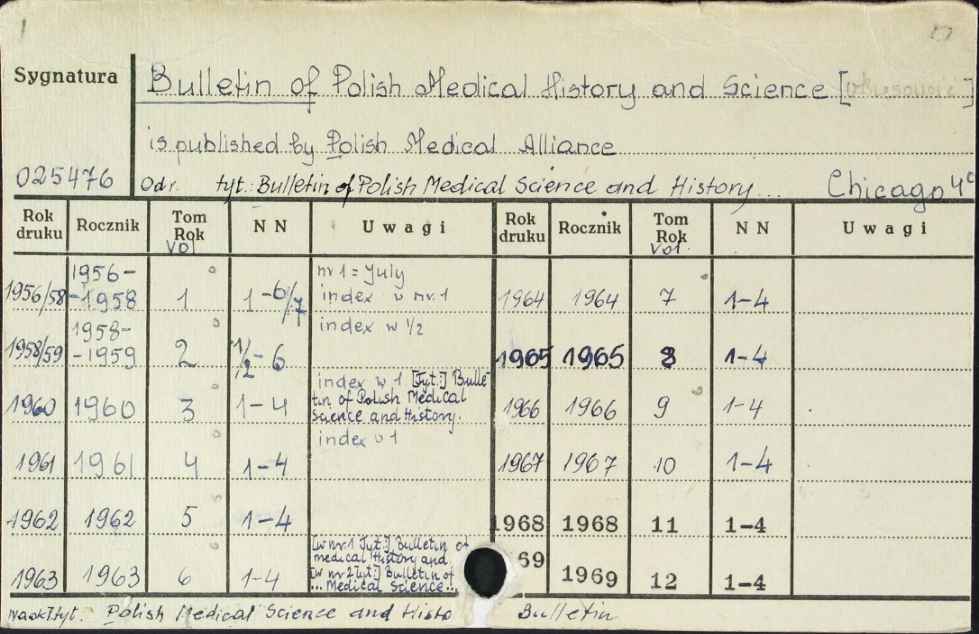 Sygnatura
Bulletin of Polish Medical History and Science [
is published by Polish Medical Alliance
025476
Odr. tyt. Bulletin of Polish Medical Science and History... Chicago 4°
Rok druku Rocznik Tom Rok Vol N N Uwagi Rok druku Rocznik Tom Rok Vol. N N Uwagi
1956/58 1956--1958 1 1-6/7 nr 1 = July
index w nr. 1
1964 1964 7 1-4
1958/59 1958--1959 2 1/2-6 index w 1/2
1965 1965 8 1-4
1960 1960 3 1-4 index w 1 [Tyt.] Bulle-
tin of Polish Medical
Science and History.
1966 1966 9 1-4
1961 1961 4 1-4 index w 1
1967 1967 10 1-4
1962 1962 5 1-4
1968 1968 11 1-4
1963 1963 6 1-4 [w nr 1 Tyt.] Bulletin of
medical History and
[w nr 2 tyt.] Bulletin of
... Medical Science..
69 1969 12 1-4
Polish Medical Science and Histo Bulletin